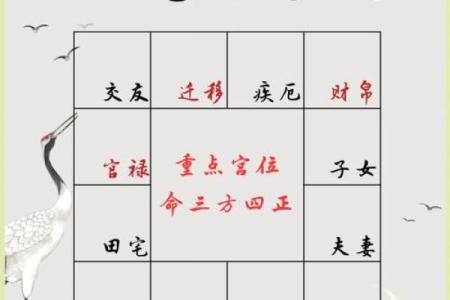 交友 迁移 疾厄 财帛
官禄 重点宫位 子女
命三方四正
田宅 夫妻